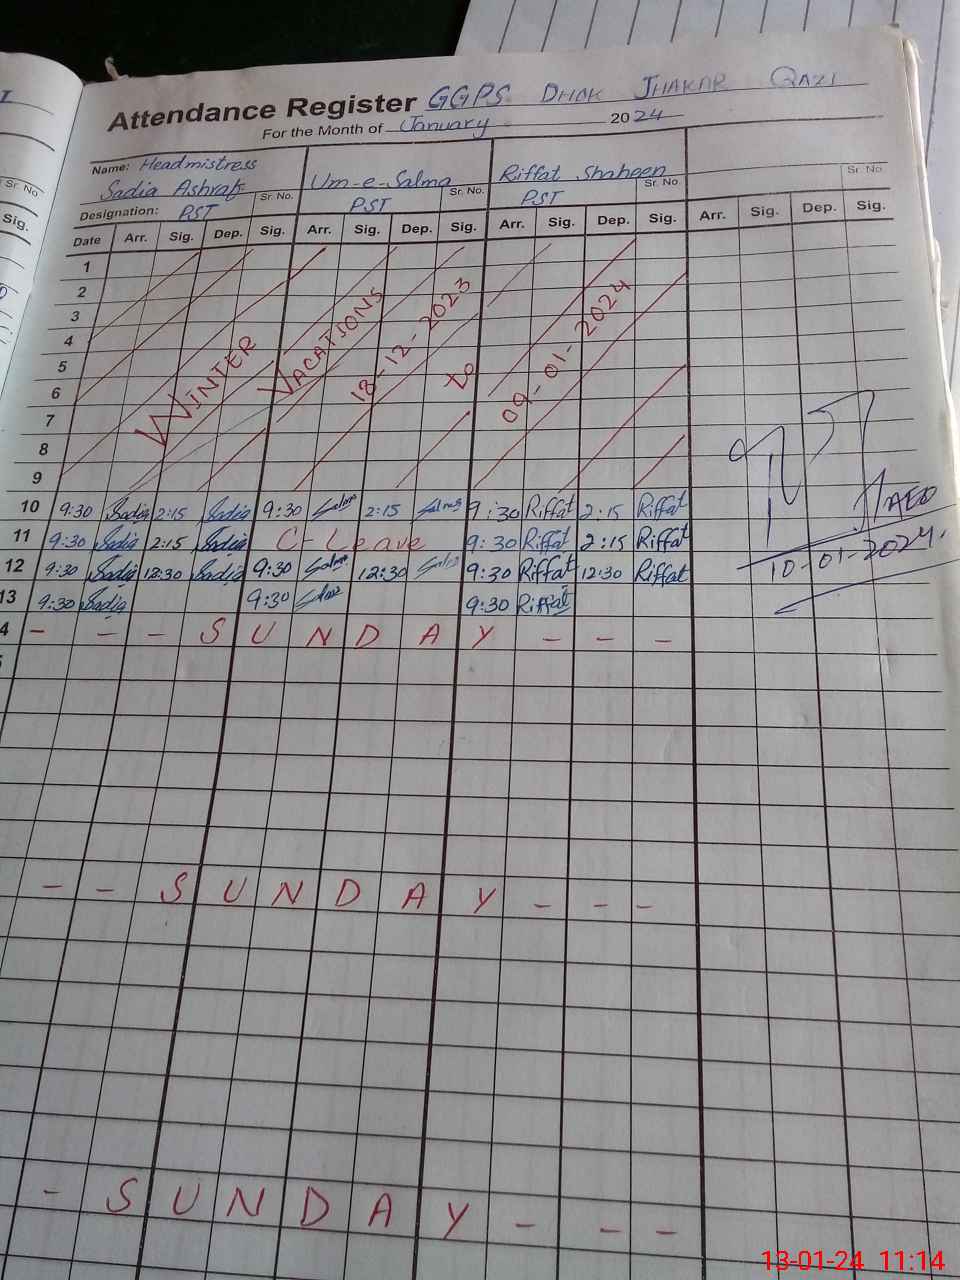 Attendance Register GGPS DHOK JHAKAR QAZI
For the Month of January 2024
Name: Headmistress
Sadia Ashraf Um-e-Salma Riffat Shaheen
Sr. No. Sr. No. Sr. No. Sr. No.
Designation: PST PST PST
Date Arr. Sig. Dep. Sig. Arr. Sig. Dep. Sig. Arr. Sig. Dep. Sig. Arr. Sig. Dep. Sig.
1
2
3
4
5
6
7
8
9
WINTER VACATIONS 18-12-2023 to 09-01-2024
10 9:30 Sadia 2:15 Sadia 9:30 Salma 2:15 Salma 9:30 Riffat 2:15 Riffat
11 9:30 Sadia 2:15 Sadia C-Leave 9:30 Riffat 2:15 Riffat
12 9:30 Sadia 12:30 Sadia 9:30 Salma 12:30 Salma 9:30 Riffat 12:30 Riffat
13 9:30 Sadia 9:30 Salma 9:30 Riffat
4 - - - SUNDAY - - -
- - SUNDAY - - -
- SUNDAY - - -
AEO
10-01-2024.
Sr. No.
Sig.
13-01-24 11:14